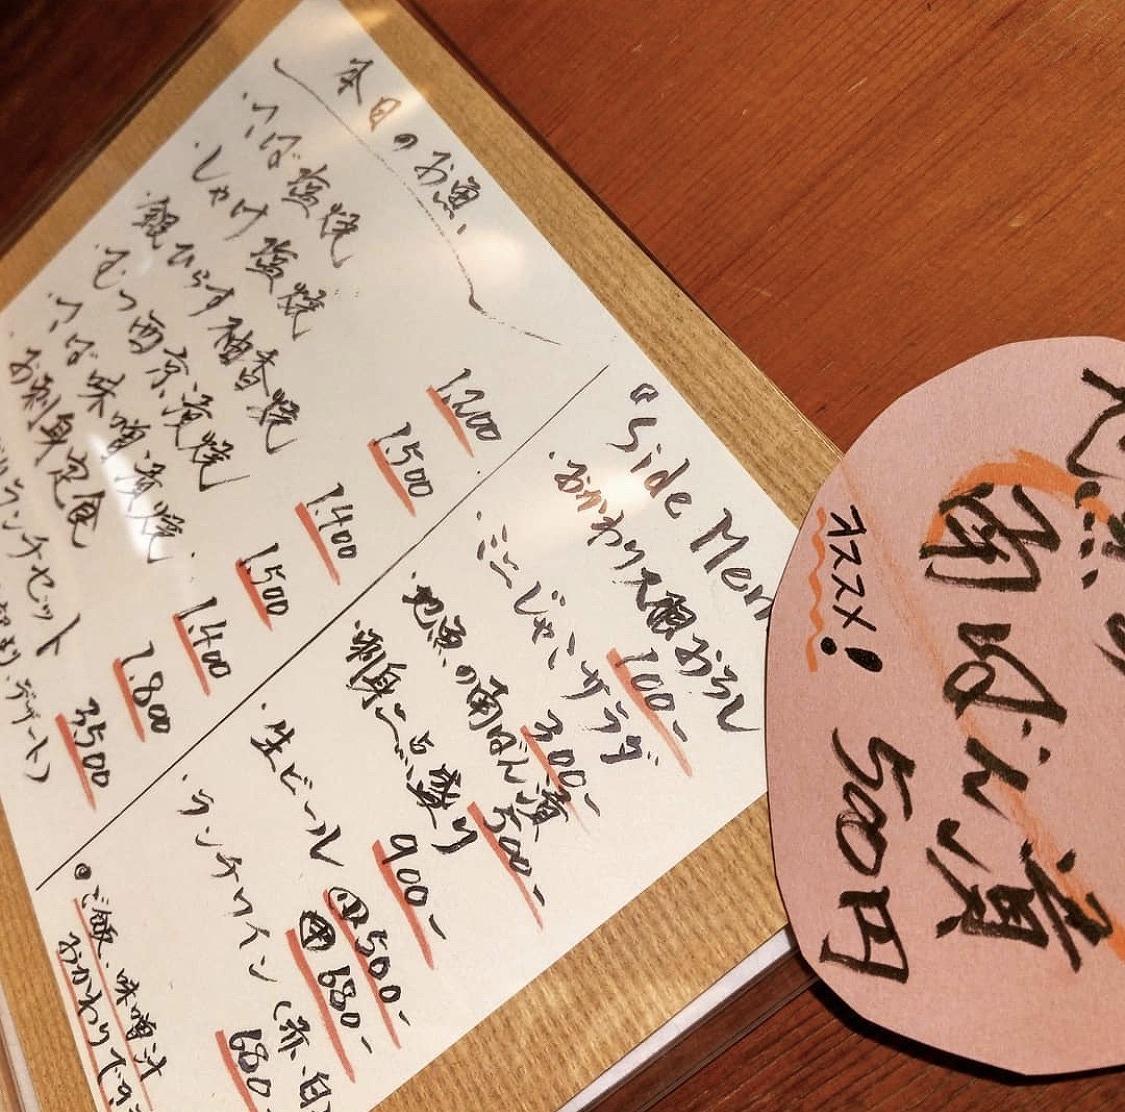 本日のお魚
・さば塩焼 1.200
・しゃけ塩焼 1.500
・銀ひらす柚香焼 1.400
・むつ西京漬焼 1.500
・さば味噌漬焼 1.400
お刺身定食 1.800
ランチセット 3,500
デザート)
"Side Men
・おかわり大根おろし 100-
・じゃこサラダ 300-
・地魚の南ばん漬 500-
・刺身一点盛り 900-
・生ビール 小 500-
中 680-
・ランチワイン(赤、白) 680-
ご飯・味噌汁
おかわりでき
オススメ!
南ばん漬
500円